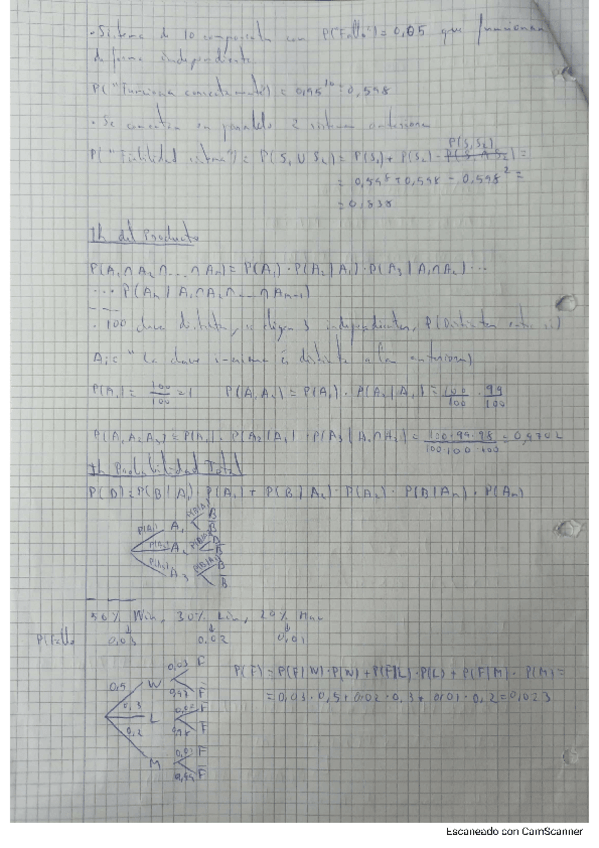 · Sistema de 10 componentes con P("Fallo") = 0,05 que funcionan
de forma independiente
P("Funciona correctamente") = 0,95^10 = 0,598
· Se conectan en paralelo 2 sistemas anteriores
P("Fiabilidad sistema") = P(S₁ ∪ S₂) = P(S₁) + P(S₂) - P(S₁S₂) =
= 0,598 + 0,598 - 0,598² =
= 0,838
Th del Producto
P(A₁ ∩ A₂ ∩ ... ∩ An) = P(A₁) · P(A₂ | A₁) · P(A₃ | A₁∩A₂) ...
... P(An | A₁ ∩ A₂ ∩ ... ∩ An-1)
· 100 claves distintas, se eligen 3 independientes, P(Distintas entre sí)
Ai = "La clave i-esima es distinta a las anteriores"
P(A₁) = 100/100 = 1 P(A₁A₂) = P(A₁) · P(A₂ | A₁) = 100/100 · 99/100
P(A₁A₂A₃) = P(A₁) · P(A₂ | A₁) · P(A₃ | A₁∩A₂) = 100·99·98/100·100·100 = 0,9702
Th Probabilidad Total
P(B) = P(B | A₁) · P(A₁) + P(B | A₂) · P(A₂) · P(B | An) · P(An)
P(A₁) A₁ B
B̄
P(A₂) A₂ B
B̄
P(A₃) A₃ B
B̄
50% Win, 30% Lin, 20% Mac
P(Fallo 0,03 0,02 0,01
P(F) = P(F | W) · P(W) + P(F | L) · P(L) + P(F | M) · P(M) =
= 0,03 · 0,5 + 0,02 · 0,3 + 0,01 · 0,2 = 0,023
0,5 W 0,03 F
0,97 F̄
0,3 L 0,02 F
0,98 F̄
0,2 M 0,01 F
0,99 F̄
Escaneado con CamScanner